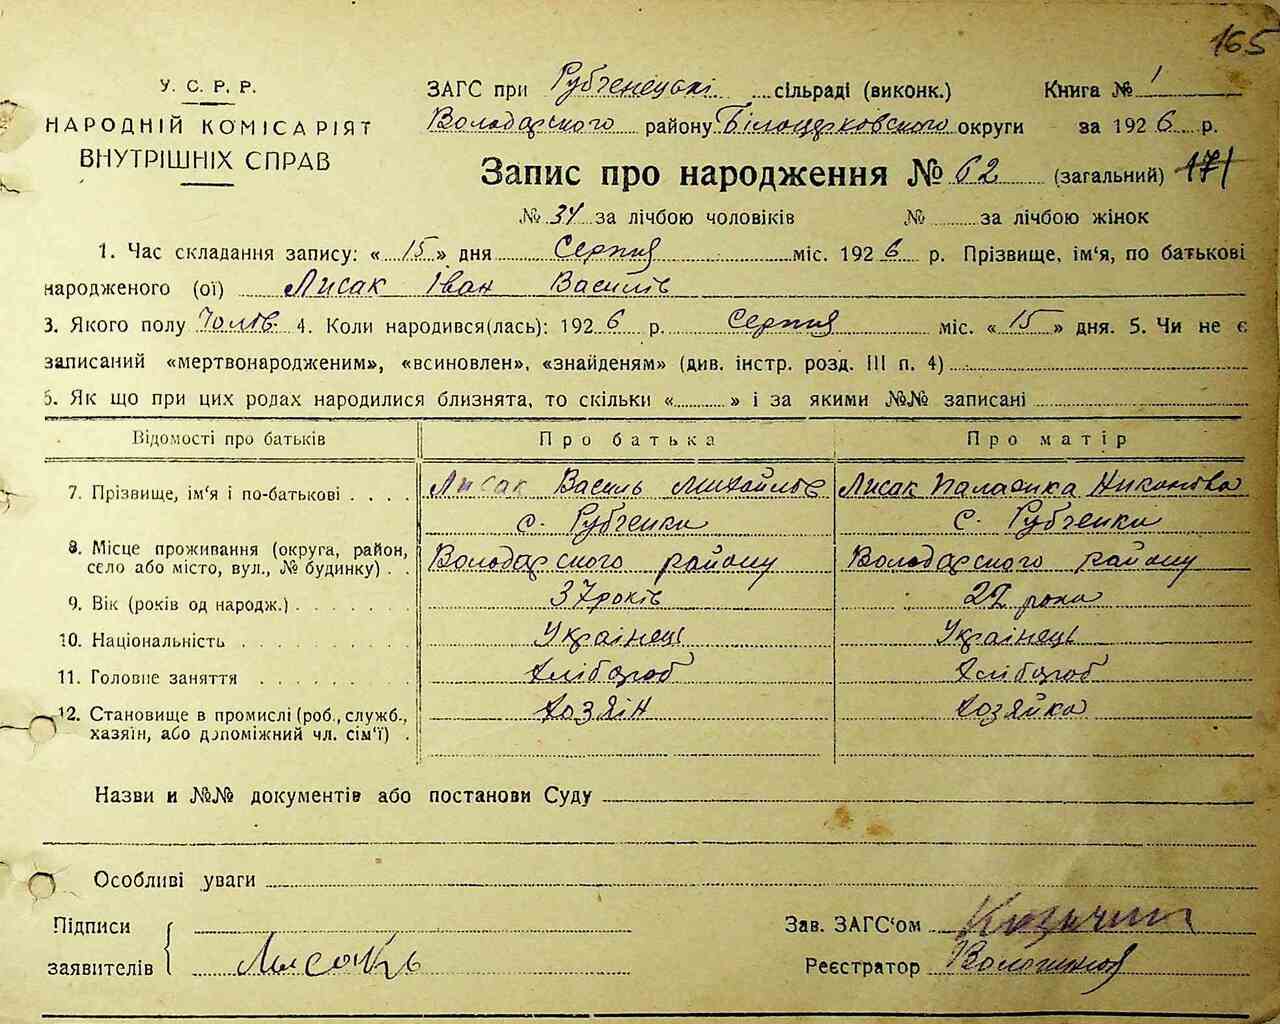 165
У. С. Р. Р.
НАРОДНІЙ КОМІСАРІЯТ
ВНУТРІШНІХ СПРАВ
ЗАГС при Рубченецькі сільраді (виконк.) Книга № 1
Володарского району Білоцерковского округи за 1926 р.
Запис про народження № 62 (загальний) 171
№ 34 за лічбою чоловіків № за лічбою жінок
1. Час складання запису: « 15 » дня Серпня міс. 1926 р. Прізвище, ім‘я, по батькові
народженого (ої) Лисак Іван Василів
3. Якого полу Чолов. 4. Коли народився(лась): 1926 р. Серпня міс. « 15 » дня. 5. Чи не є
записаний «мертвонародженим», «всиновлен», «знайденям» (див. інстр. розд. III п. 4)
6. Як що при цих родах народилися близнята, то скільки « » і за якими №№ записані
Відомості про батьків Про батька Про матір
7. Прізвище, ім‘я і по-батькові Лисак Василь Михайлов Лисак Палажка Никонова
с. Рубченки с. Рубченки
8. Місце проживання (округа, район,
село або місто, вул., № будинку) Володарского району Володарского району
9. Вік (років од народж.) 37 років 22 роки
10. Національність Українець Українець
11. Головне заняття Хлібороб Хлібороб
12. Становище в промислі (роб., служб., Хозяін Хозяйка
хазяїн, або допоміжний чл. сім‘ї)
Назви и №№ документів або постанови Суду
Особливі уваги
Підписи
заявителів Лисакъ
Зав. ЗАГС‘ом
Реєстратор